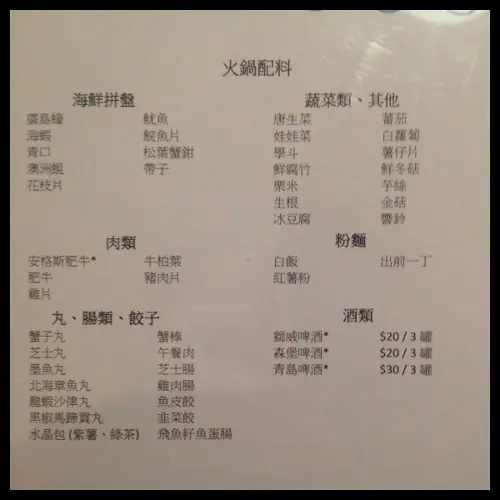 火鍋配料
海鮮拼盤
廣島蠔 魷魚
海蝦 鯇魚片
青口 松葉蟹鉗
澳洲蜆 帶子
花枝片
蔬菜類、其他
唐生菜 蕃茄
娃娃菜 白蘿蔔
學斗 薯仔片
鮮腐竹 鮮冬菇
粟米 芋絲
生根 金菇
冰豆腐 響鈴
肉類
安格斯肥牛* 牛柏葉
肥牛 豬肉片
雞片
粉麵
白飯 出前一丁
紅薯粉
丸、腸類、餃子
蟹子丸 蟹棒
芝士丸 午餐肉
墨魚丸 芝士腸
北海章魚丸 雞肉腸
龍蝦沙律丸 魚皮餃
黑椒馬蹄貢丸 韭菜餃
水晶包 (紫薯、綠茶) 飛魚籽魚蛋腸
酒類
獅威啤酒* $20 / 3 罐
森堡啤酒* $20 / 3 罐
青島啤酒* $30 / 3 罐